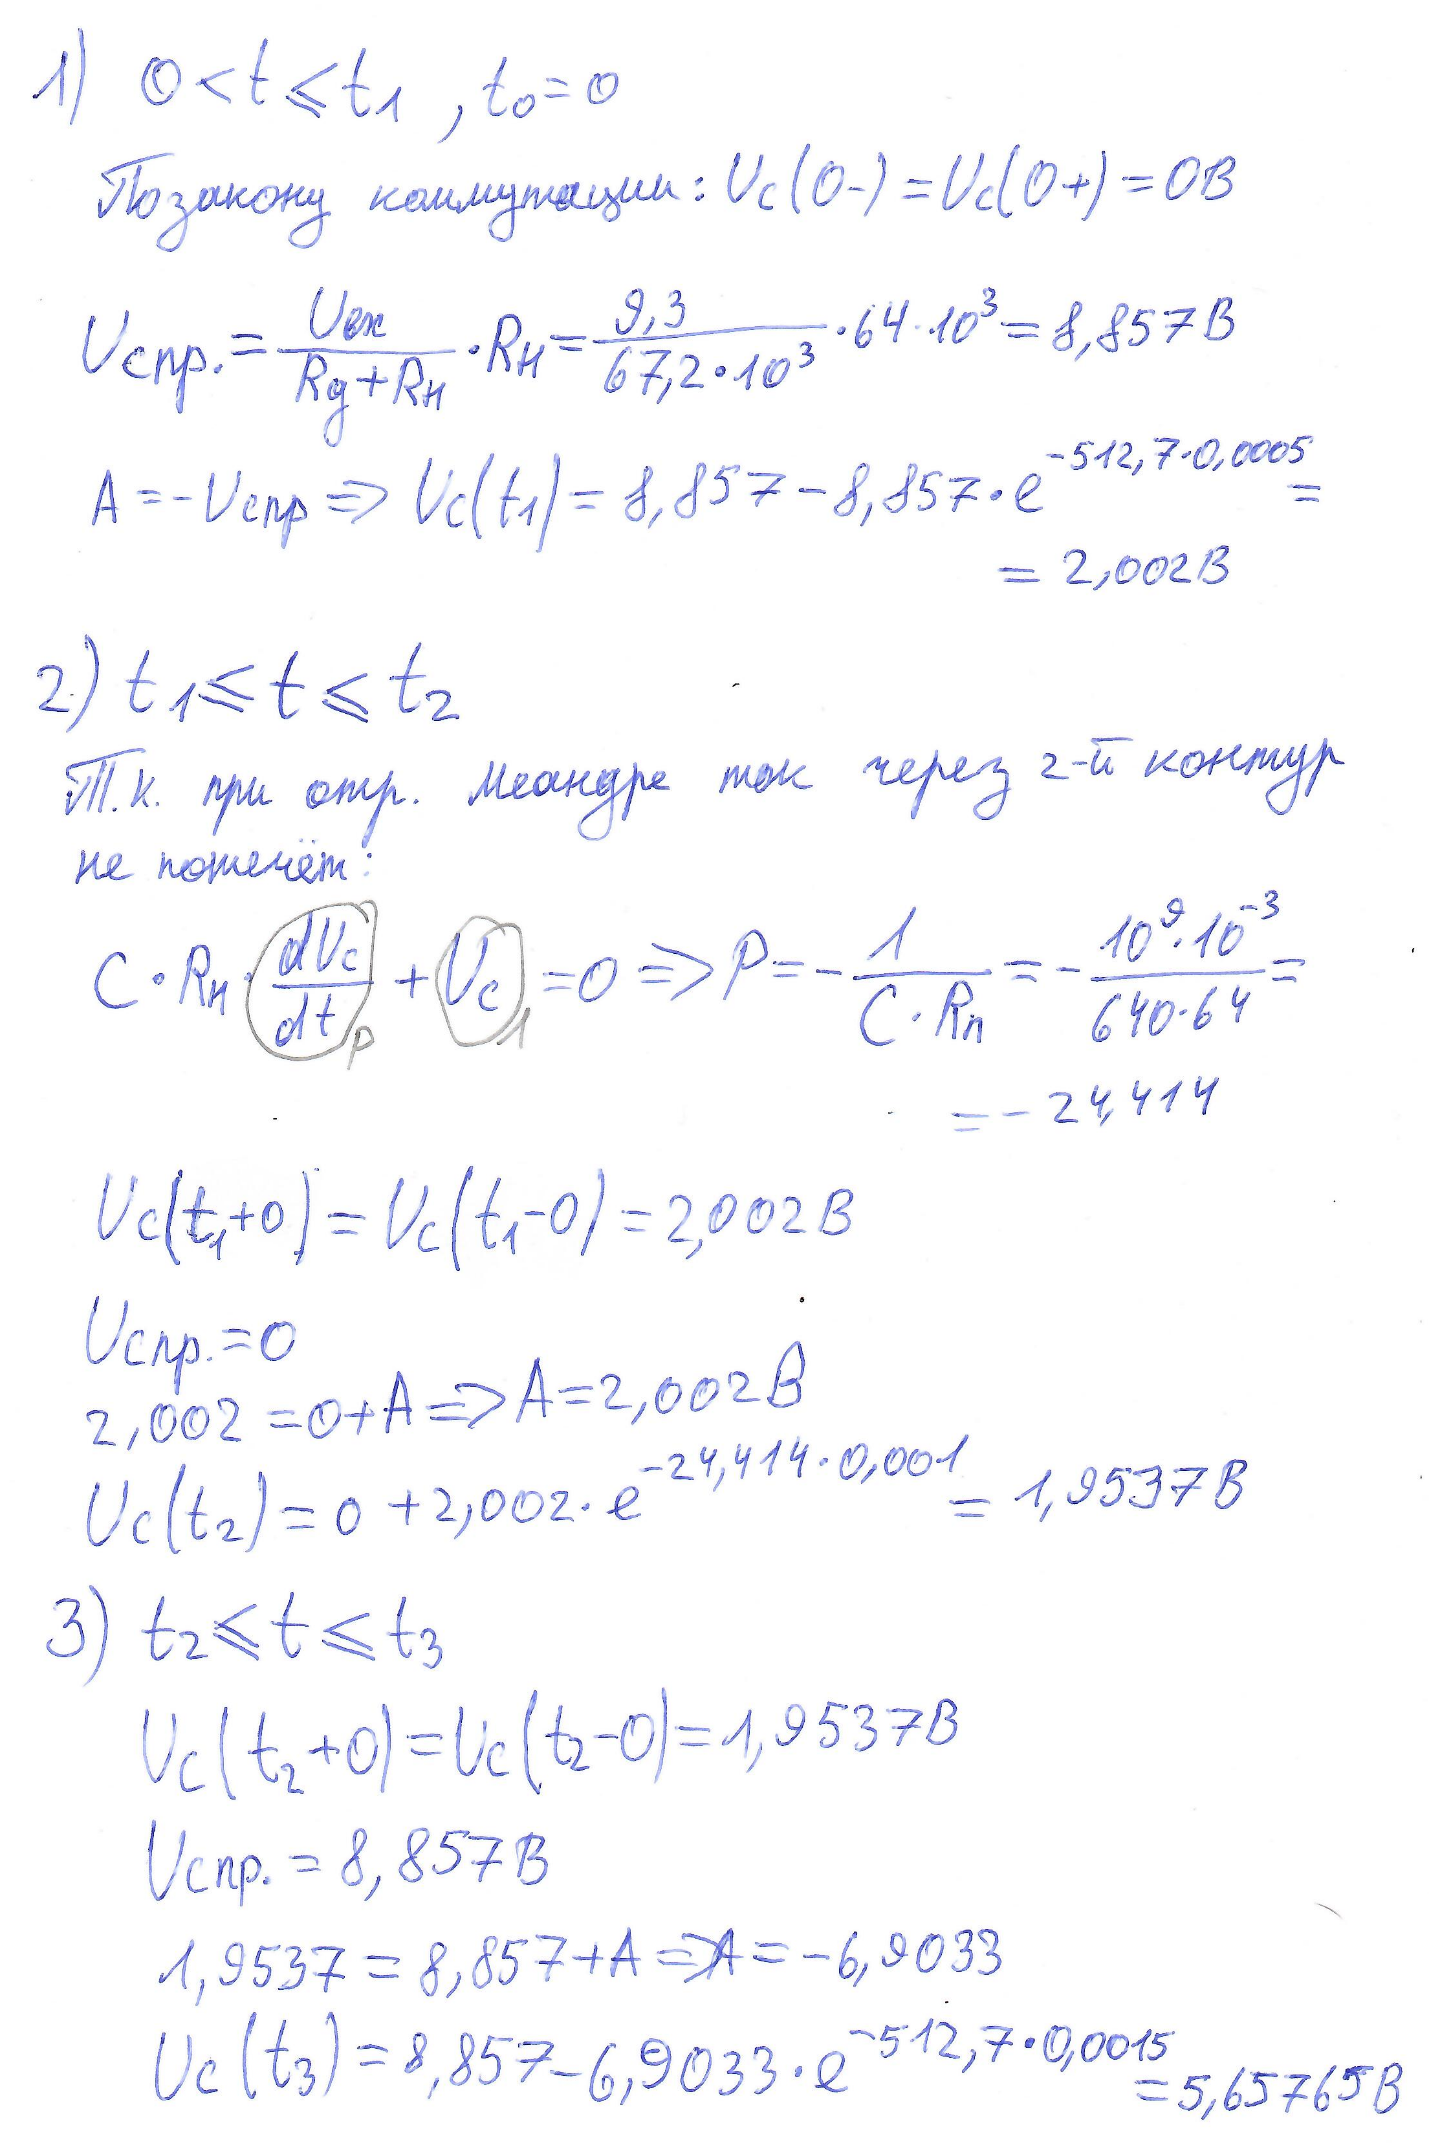 1) 0 < t ⩽ t1 , t0 = 0
По закону коммутации: Uc(0-) = Uc(0+) = 0В
Uспр. = Uвх / (Rд + Rн) · Rн = 9,3 / (67,2 · 10³) · 64 · 10³ = 8,857 В
A = -Uспр => Uc(t1) = 8,857 - 8,857 · e^(-512,7 · 0,0005) =
= 2,002 В
2) t1 ⩽ t ⩽ t2
Т.к. при отр. меандре ток через 2-й контур
не потечёт:
C · Rн · dUc/dt + Uc = 0 => P = - 1 / (C · Rn) = - 10⁹ · 10⁻³ / (640 · 64) =
p 1
= - 24,414
Uc(t1+0) = Uc(t1-0) = 2,002 В
Uспр. = 0
2,002 = 0 + A => A = 2,002 В
Uc(t2) = 0 + 2,002 · e^(-24,414 · 0,001) = 1,9537 В
3) t2 ⩽ t ⩽ t3
Uc(t2+0) = Uc(t2-0) = 1,9537 В
Uспр. = 8,857 В
1,9537 = 8,857 + A => A = -6,9033
Uc(t3) = 8,857 - 6,9033 · e^(-512,7 · 0,0015) = 5,65765 В